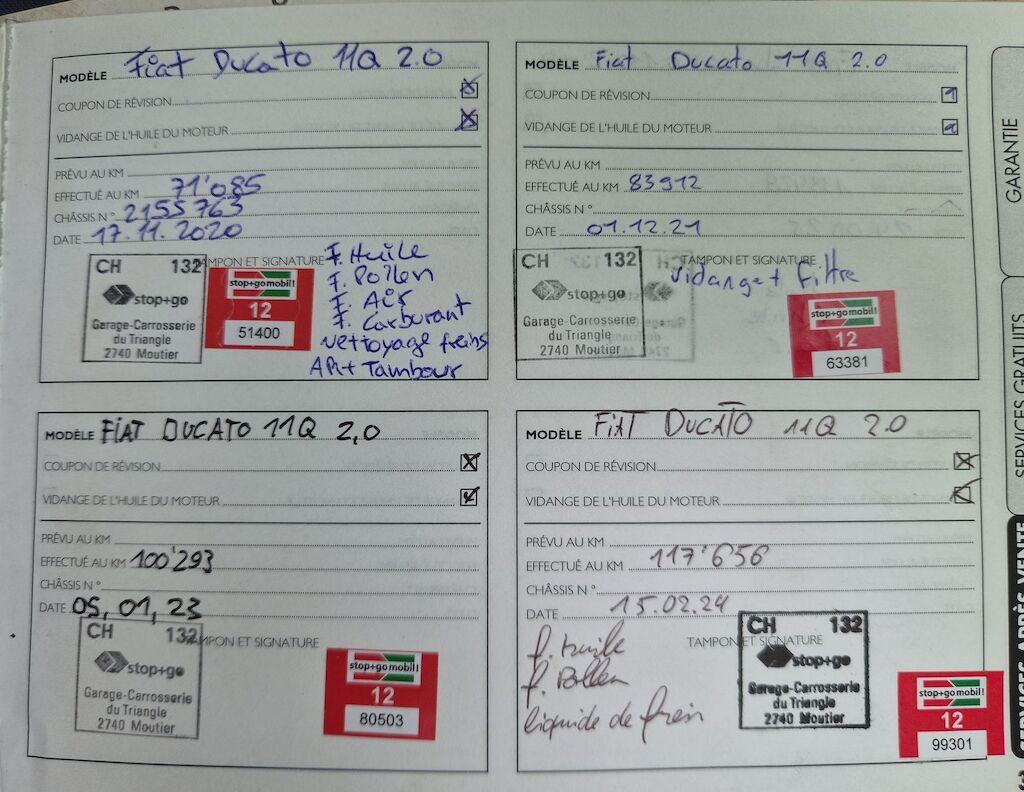 MODÈLE Fiat Ducato 11Q 2.0
COUPON DE RÉVISION
VIDANGE DE L'HUILE DU MOTEUR
PRÉVU AU KM
EFFECTUÉ AU KM 71'085
CHÂSSIS N° 2155763
DATE 17.11.2020
TAMPON ET SIGNATURE
CH 132
stop+go
Garage-Carrosserie
du Triangle
2740 Moutier
stop+go mobil!
12
51400
F. Huile
F. Pollen
F. Air
F. Carburant
Nettoyage freins
AR+ Tambour
MODÈLE Fiat Ducato 11Q 2.0
COUPON DE RÉVISION 1
VIDANGE DE L'HUILE DU MOTEUR 1
PRÉVU AU KM
EFFECTUÉ AU KM 83912
CHÂSSIS N°
DATE 01.12.21
TAMPON ET SIGNATURE
Vidange + Filtre
CH 132
stop+go
Garage-Carrosserie
du Triangle
2740 Moutier
stop+go mobil!
12
63381
MODÈLE FIAT DUCATO 11Q 2,0
COUPON DE RÉVISION
VIDANGE DE L'HUILE DU MOTEUR
PRÉVU AU KM
EFFECTUÉ AU KM 100'293
CHÂSSIS N°
DATE 05,01,23
TAMPON ET SIGNATURE
CH 132
stop+go
Garage-Carrosserie
du Triangle
2740 Moutier
stop+go mobil!
12
80503
MODÈLE FIAT DUCATO 11Q 2.0
COUPON DE RÉVISION
VIDANGE DE L'HUILE DU MOTEUR
PRÉVU AU KM
EFFECTUÉ AU KM 117'656
CHÂSSIS N°
DATE 15.02.24
TAMPON ET SIGNATURE
f. Huile
f. Pollen
liquide de frein
CH 132
stop+go
Garage-Carrosserie
du Triangle
2740 Moutier
stop+go mobil!
12
99301
GARANTIE
SERVICES GRATUITS
SERVICES APRÈS VENTE